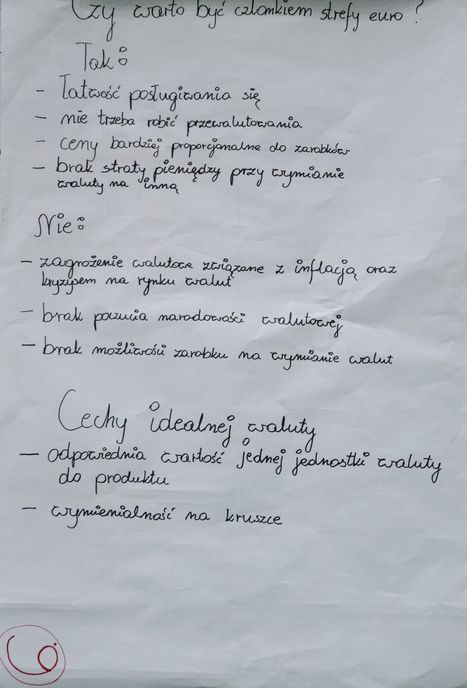 Czy warto być członkiem strefy euro?
Tak:
- łatwość posługiwania się
- nie trzeba robić przewalutowania
- ceny bardziej proporcjonalne do zarobków
- brak straty pieniędzy przy wymianie
waluty na inną
Nie:
- zagrożenie walutowe związane z inflacją oraz
kryzysem na rynku walut
- brak poczucia narodowości walutowej
- brak możliwości zarobku na wymianie walut
Cechy idealnej waluty
- odpowiednia wartość jednej jednostki waluty
do produktu
- wymienialność na kruszce